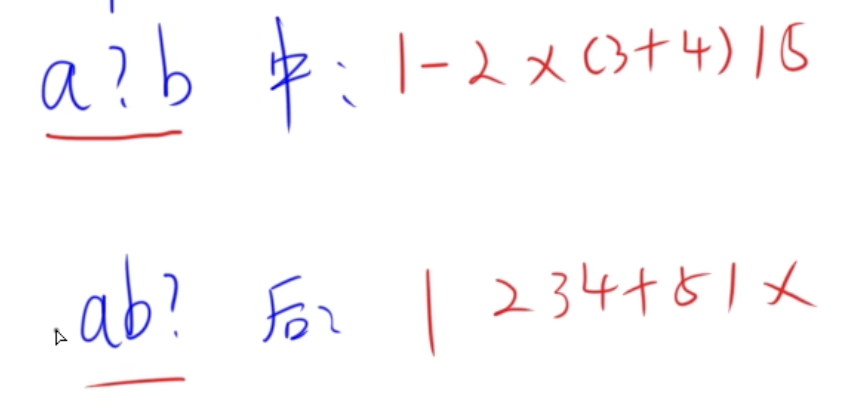 a?b 中: 1-2×(3+4)/5
ab? 后: 1 234+5/×